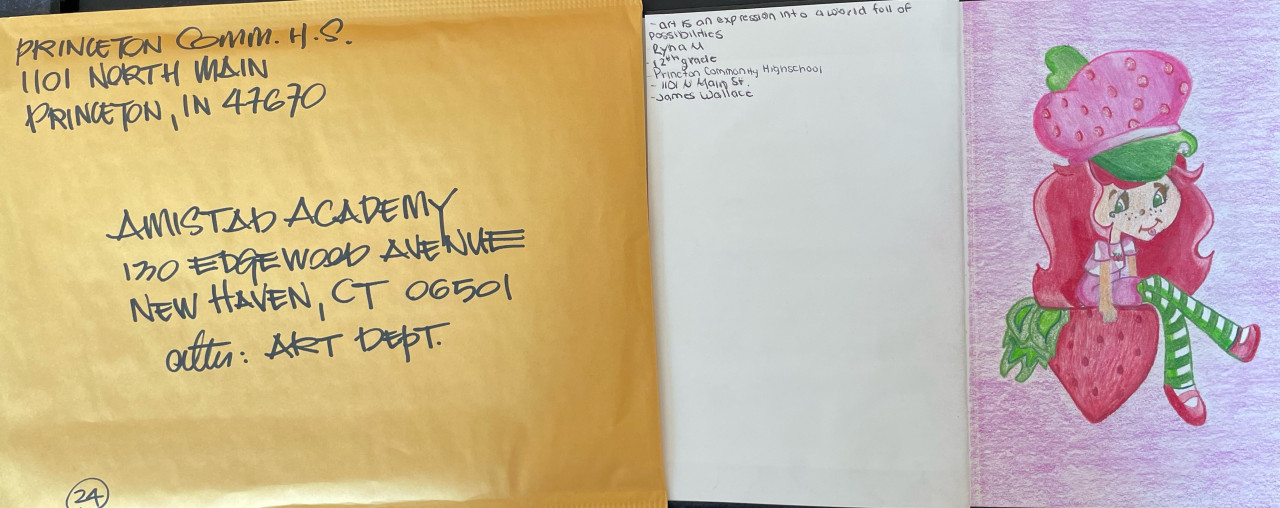 PRINCETON COMM. H.S.
1101 NORTH MAIN
PRINCETON, IN 47670
AMISTAD ACADEMY
130 EDGEWOOD AVENUE
NEW HAVEN, CT 06501
attn: ART DEPT.
24
- art is an expression into a world full of
possibilities
Ryna M
- 12th grade
- Princeton Community Highschool
- 1101 N Main St.
- James Wallace